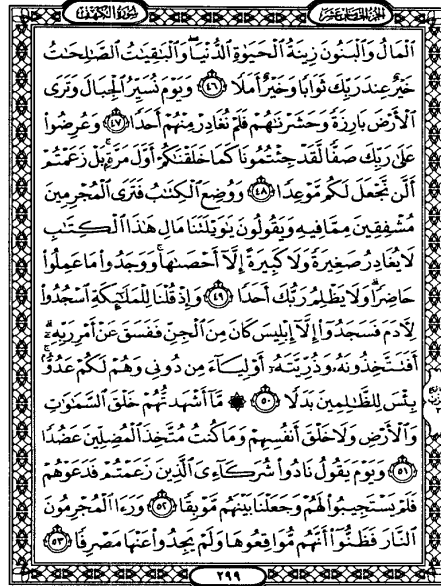 سورة الكهف
الجزء الخامس عشر
ٱلْمَالُ وَٱلْبَنُونَ زِينَةُ ٱلْحَيَوٰةِ ٱلدُّنْيَا ۖ وَٱلْبَٰقِيَٰتُ ٱلصَّٰلِحَٰتُ
خَيْرٌ عِندَ رَبِّكَ ثَوَابًا وَخَيْرٌ أَمَلًا ﴿٤٦﴾ وَيَوْمَ نُسَيِّرُ ٱلْجِبَالَ وَتَرَى
ٱلْأَرْضَ بَارِزَةً وَحَشَرْنَٰهُمْ فَلَمْ نُغَادِرْ مِنْهُمْ أَحَدًا ﴿٤٧﴾ وَعُرِضُوا۟
عَلَىٰ رَبِّكَ صَفًّا لَّقَدْ جِئْتُمُونَا كَمَا خَلَقْنَٰكُمْ أَوَّلَ مَرَّةٍۭ ۚ بَلْ زَعَمْتُمْ
أَلَّن نَّجْعَلَ لَكُم مَّوْعِدًا ﴿٤٨﴾ وَوُضِعَ ٱلْكِتَٰبُ فَتَرَى ٱلْمُجْرِمِينَ
مُشْفِقِينَ مِمَّا فِيهِ وَيَقُولُونَ يَٰوَيْلَتَنَا مَالِ هَٰذَا ٱلْكِتَٰبِ
لَا يُغَادِرُ صَغِيرَةً وَلَا كَبِيرَةً إِلَّآ أَحْصَىٰهَا ۚ وَوَجَدُوا۟ مَا عَمِلُوا۟
حَاضِرًا ۗ وَلَا يَظْلِمُ رَبُّكَ أَحَدًا ﴿٤٩﴾ وَإِذْ قُلْنَا لِلْمَلَٰٓئِكَةِ ٱسْجُدُوا۟
لِءَادَمَ فَسَجَدُوٓا۟ إِلَّآ إِبْلِيسَ كَانَ مِنَ ٱلْجِنِّ فَفَسَقَ عَنْ أَمْرِ رَبِّهِۦٓ ۗ
أَفَتَتَّخِذُونَهُۥ وَذُرِّيَّتَهُۥٓ أَوْلِيَآءَ مِن دُونِى وَهُمْ لَكُمْ عَدُوٌّۢ ۚ
بِئْسَ لِلظَّٰلِمِينَ بَدَلًا ﴿٥٠﴾ ۞ مَّآ أَشْهَدتُّهُمْ خَلْقَ ٱلسَّمَٰوَٰتِ
وَٱلْأَرْضِ وَلَا خَلْقَ أَنفُسِهِمْ وَمَا كُنتُ مُتَّخِذَ ٱلْمُضِلِّينَ عَضُدًا
﴿٥١﴾ وَيَوْمَ يَقُولُ نَادُوا۟ شُرَكَآءِىَ ٱلَّذِينَ زَعَمْتُمْ فَدَعَوْهُمْ
فَلَمْ يَسْتَجِيبُوا۟ لَهُمْ وَجَعَلْنَا بَيْنَهُم مَّوْبِقًا ﴿٥٢﴾ وَرَءَا ٱلْمُجْرِمُونَ
ٱلنَّارَ فَظَنُّوٓا۟ أَنَّهُم مُّوَاقِعُوهَا وَلَمْ يَجِدُوا۟ عَنْهَا مَصْرِفًا ﴿٥٣﴾
٢٩٩